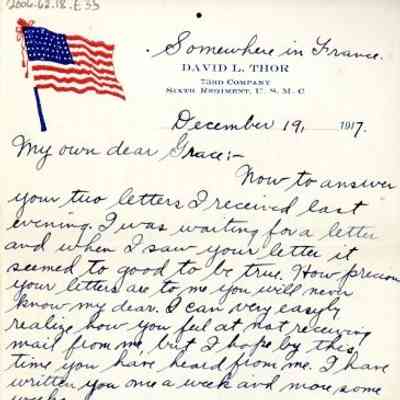 2006.62.18.E35
Somewhere in France.
DAVID L. THOR
73RD COMPANY
SIXTH REGIMENT, U. S. M. C
December 19, 1917.
My own dear Grace:-
Now to answer
your two letters I received last
evening. I was waiting for a letter
and when I saw your letter it
seemed to good to be true. How precious
your letters are to me you will never
know my dear. I can very easyly
realize how you feel at not receiving
mail from me, but I hope by this
time you have heard from me. I have
written you once a week and more some
weeks